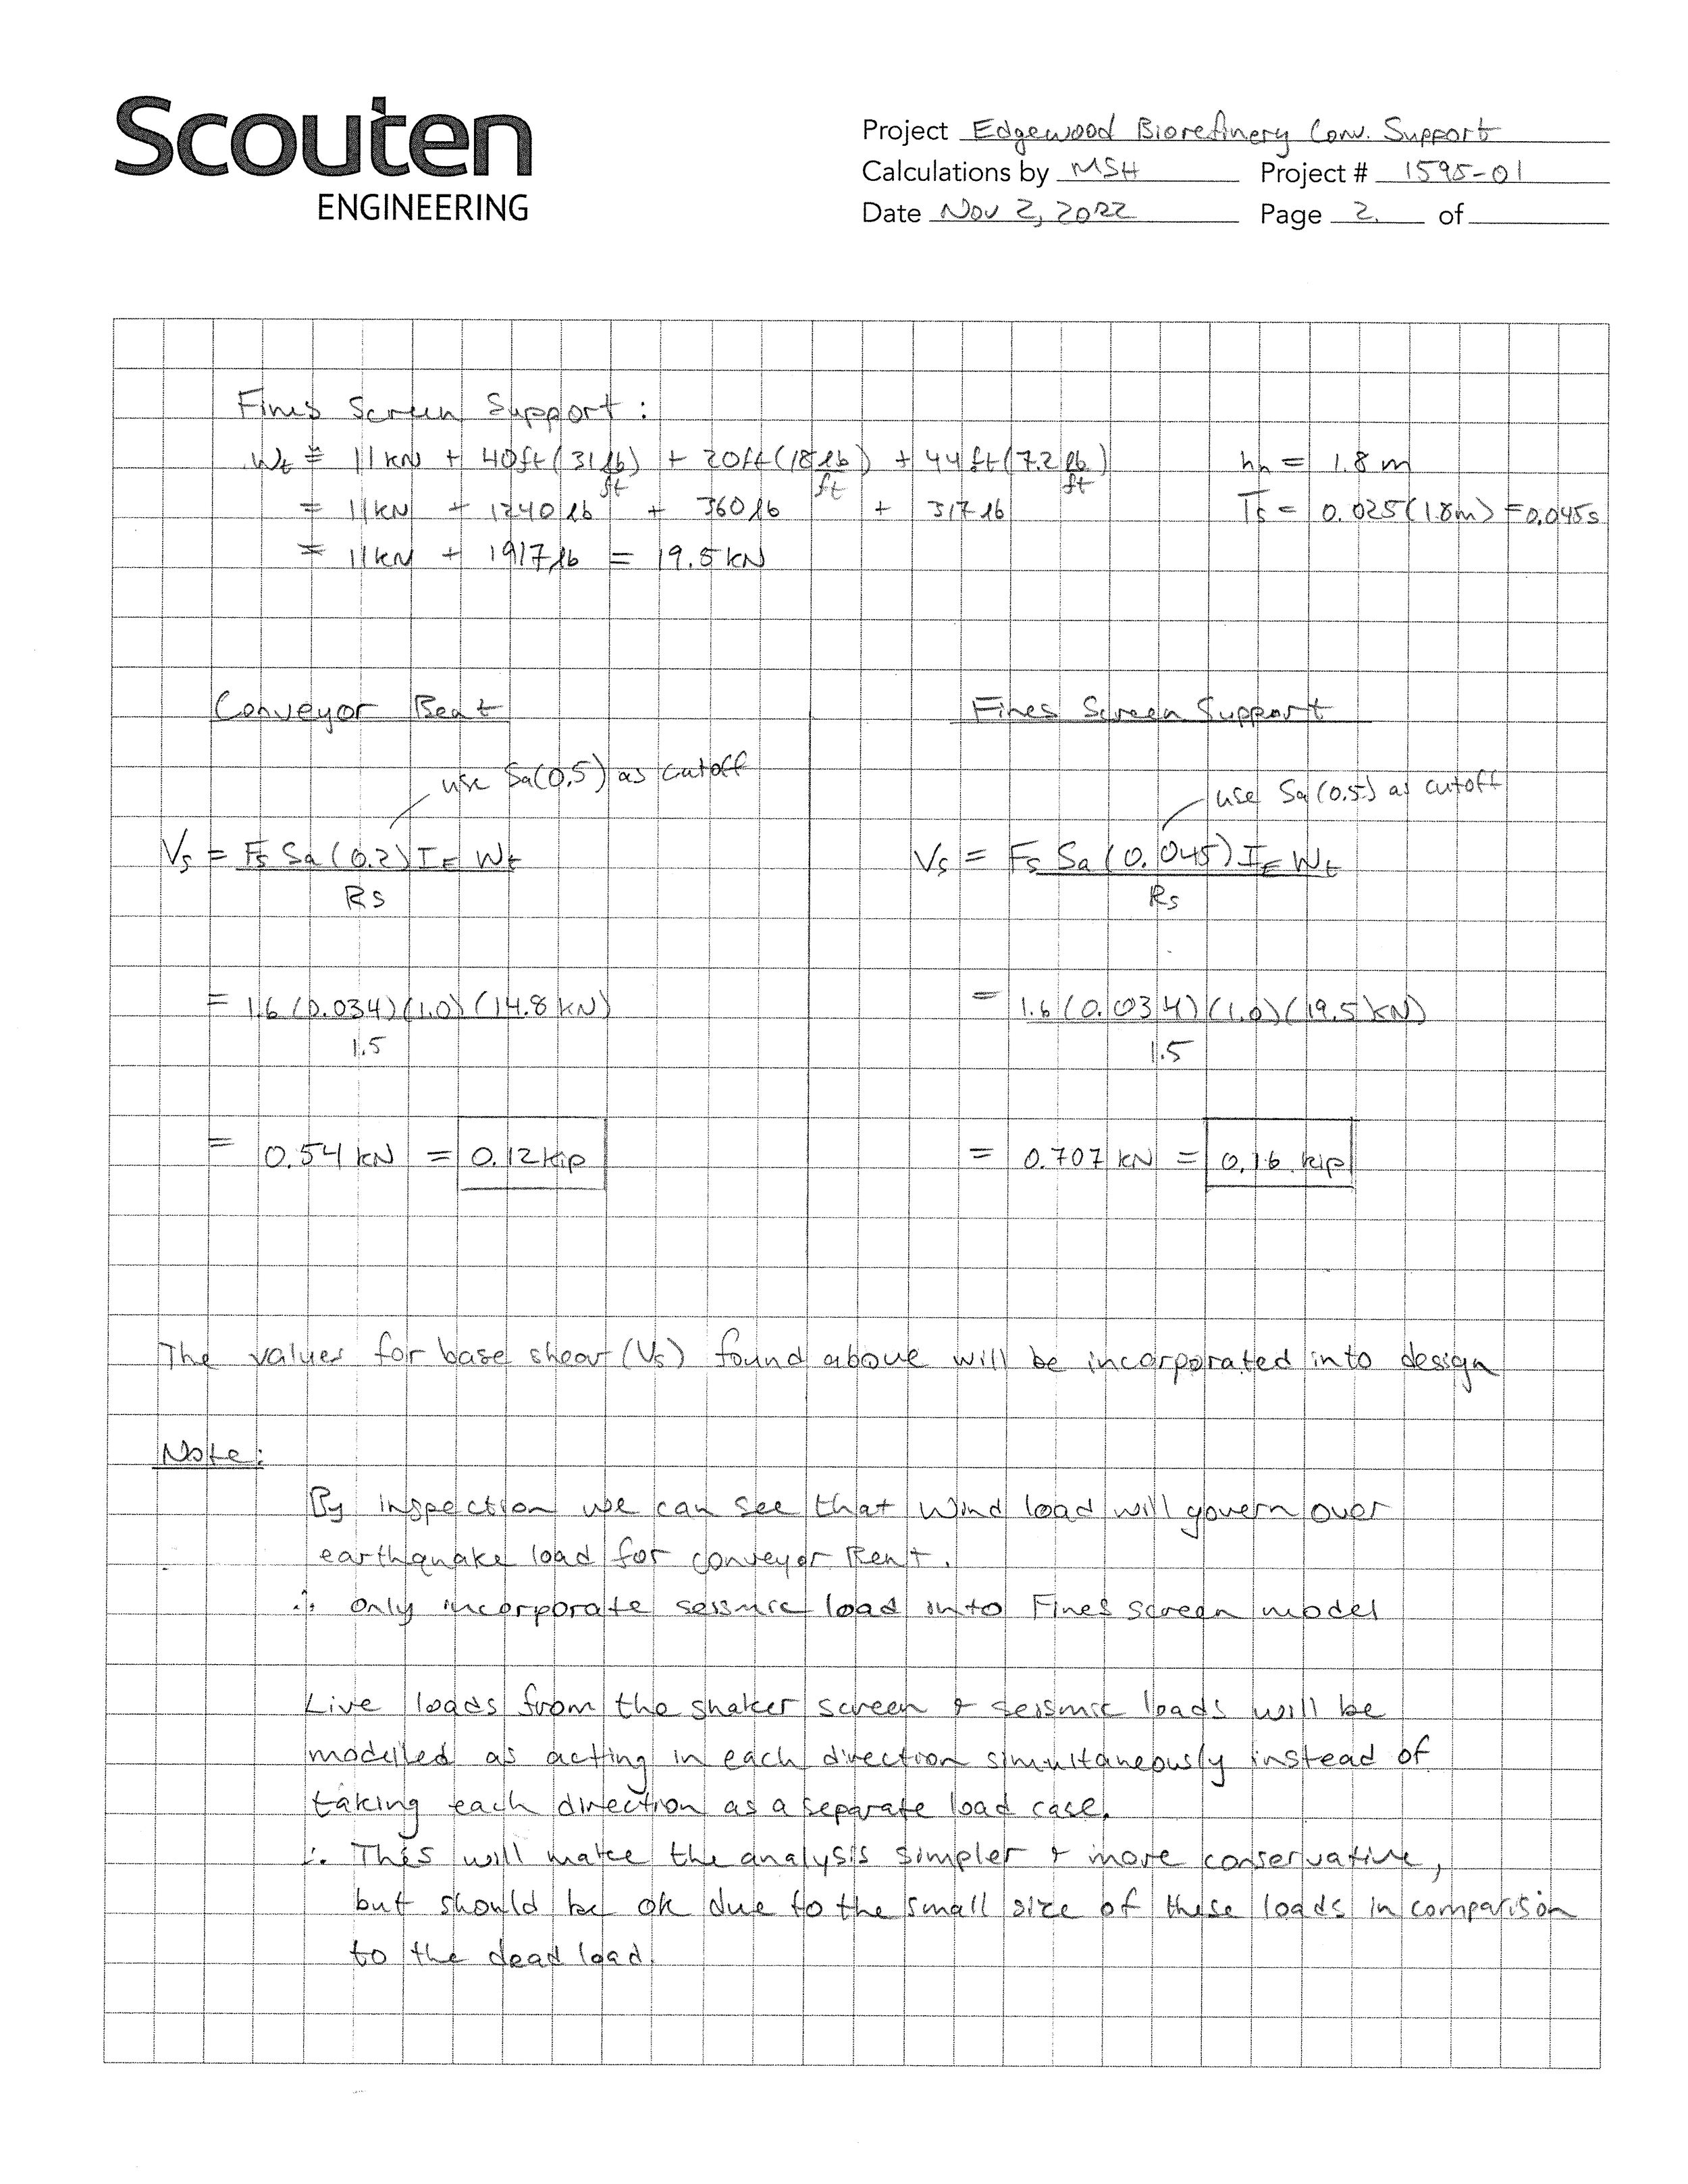 Scouten
ENGINEERING
Project Edgewood Biorefinery Conv. Support
Calculations by MSH Project # 1595-01
Date Nov 2, 2022 Page 2 of
Fines Screen Support:
Wt = 11kN + 40ft(31 lb/ft) + 20ft(18 lb/ft) + 44ft(7.2 lb/ft) hn = 1.8 m
= 11kN + 1240 lb + 360 lb + 317 lb Ts = 0.025(1.8m) = 0.045s
= 11kN + 1917 lb = 19.5 kN
Conveyor Bent
use Sa(0.5) as cutoff
Vs = Fs Sa(0.2) IE Wt
Rs
= 1.6(0.034)(1.0)(14.8 kN)
1.5
= 0.54 kN = 0.12 kip
Fines Screen Support
use Sa(0.5) as cutoff
Vs = Fs Sa(0.045) IE Wt
Rs
= 1.6(0.034)(1.0)(19.5 kN)
1.5
= 0.707 kN = 0.16 kip
The values for base shear (Vs) found above will be incorporated into design
Note:
By inspection we can see that wind load will govern over
earthquake load for conveyor Bent.
∴ only incorporate seismic load into Fines screen model
Live loads from the shaker screen & seismic loads will be
modelled as acting in each direction simultaneously instead of
taking each direction as a separate load case.
∴ This will make the analysis simpler & more conservative,
but should be ok due to the small size of these loads in comparison
to the dead load.